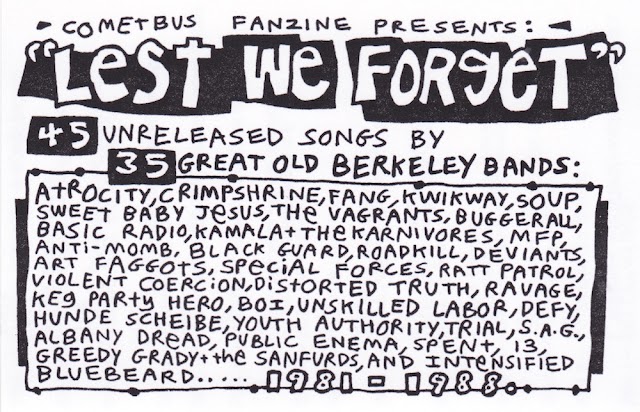 COMETBUS FANZINE PRESENTS:
"LEST WE FORGET"
45 UNRELEASED SONGS BY
35 GREAT OLD BERKELEY BANDS:
ATROCITY, CRIMPSHRINE, FANG, KWIKWAY, SOUP,
SWEET BABY JESUS, THE VAGRANTS, BUGGERALL,
BASIC RADIO, KAMALA + THE KARNIVORES, MFP,
ANTI-MOMB, BLACK GUARD, ROADKILL, DEVIANTS,
ART FAGGOTS, SPECIAL FORCES, RATT PATROL,
VIOLENT COERCION, DISTORTED TRUTH, RAVAGE,
KEG PARTY HERO, BOI, UNSKILLED LABOR, DEFY,
HUNDE SCHEIBE, YOUTH AUTHORITY, TRIAL, S.A.G.,
ALBANY DREAD, PUBLIC ENEMA, SPENT, 13,
GREEDY GRADY + THE SANFURDS, AND INTENSIFIED
BLUEBEARD..... 1981-1988.